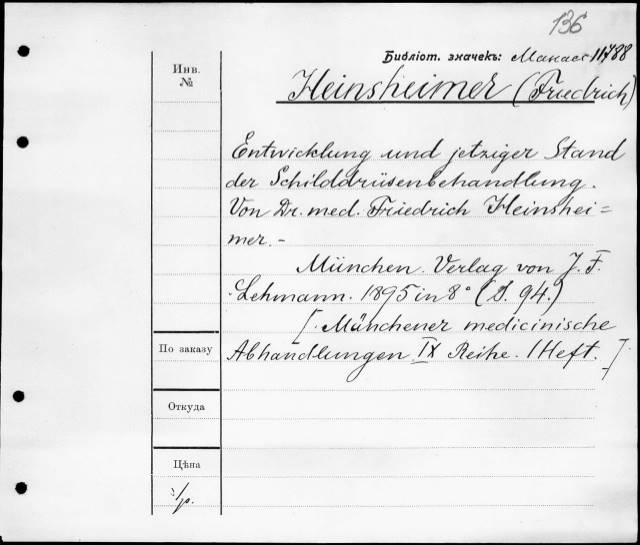 136
Библіот. значекъ: Манасс 11788
Инв.
№
Heinsheimer (Friedrich)
Entwicklung und jetziger Stand
der Schilddrüsenbehandlung.
Von Dr. med. Friedrich Heinshei=
mer. -
München. Verlag von J. F.
Lehmann. 1895 in 8° (S. 94.)
[. Münchener medicinische
По заказу
Abhandlungen IX Reihe. 1 Heft. ]
Откуда
Цѣна